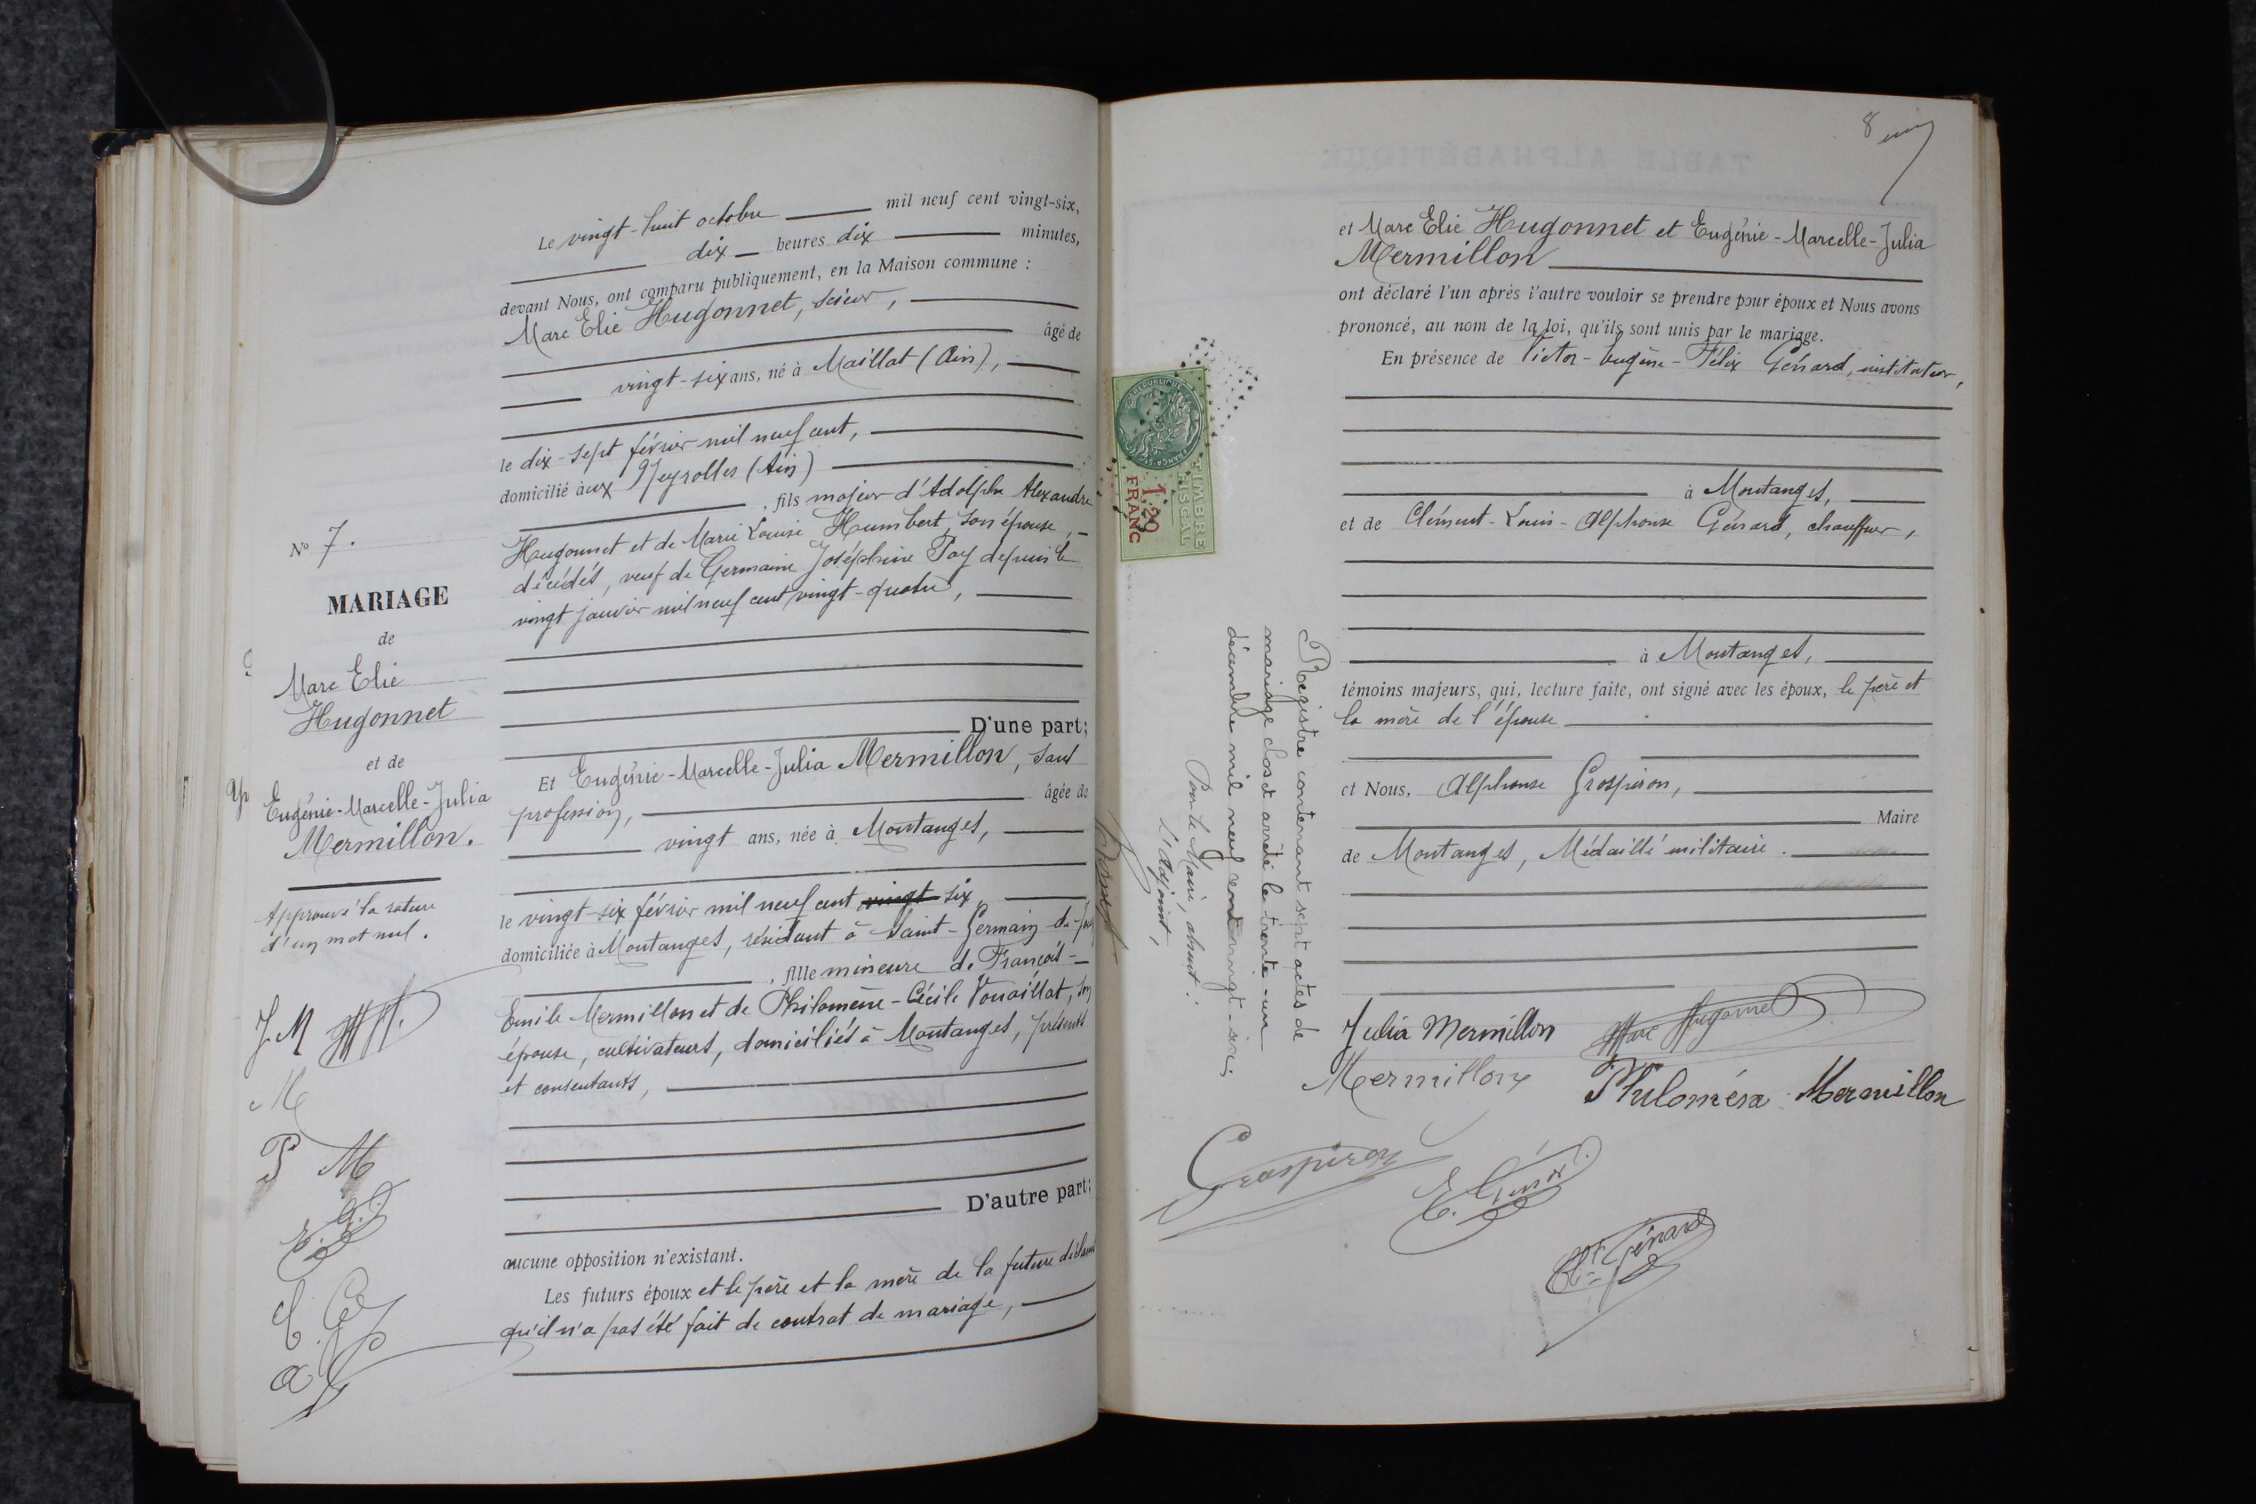 Le vingt-huit octobre mil neuf cent vingt-six,
dix heures dix minutes,
devant Nous, ont comparu publiquement, en la Maison commune :
Marc Elie Hugonnet, scieur,
âgé de
vingt-six ans, né à Maillat (Ain),
le dix-sept février mil neuf cent,
domicilié aux Neyrolles (Ain)
, fils majeur d'Adolphe Alexandre
Hugonnet et de Marie Louise Humbert, son épouse,
décédés, veuf de Germaine Joséphine Poy depuis le
vingt janvier mil neuf cent vingt-quatre,
D'une part;
Et Eugénie-Marcelle-Julia Mermillon, sans
profession, âgée de
vingt ans, née à Montanges,
le vingt-six février mil neuf cent vingt six
domiciliée à Montanges, résidant à Saint-Germain de
, fille mineure de François-
Emile Mermillon et de Philomène-Cécile Vouaillat, son
épouse, cultivateurs, domiciliés à Montanges, présents
et consentants,
D'autre part;
aucune opposition n'existant.
Les futurs époux et le père et la mère de la future déclarent
qu'il n'a pas été fait de contrat de mariage,
N° 7.
MARIAGE
de
Marc Elie
Hugonnet
et de
Eugénie-Marcelle-Julia
Mermillon.
Approuvé la rature
d'un mot nul.
J M
M
P M
8
et Marc Elie Hugonnet et Eugénie-Marcelle-Julia
Mermillon
ont déclaré l'un après l'autre vouloir se prendre pour époux et Nous avons
prononcé, au nom de la loi, qu'ils sont unis par le mariage.
En présence de Victor-Eugène-Félix Génard, instituteur,
à Montanges,
et de Clément-Louis-Alphonse Génard, chauffeur,
à Montanges,
témoins majeurs, qui, lecture faite, ont signé avec les époux, le père et
la mère de l'épouse
et Nous, Alphonse Grospiron,
Maire
de Montanges, Médaillé militaire.
Julia Mermillon Marc Hugonnet
Mermillon Philomène Mermillon
Grospiron E. Génard
Ct Génard
TIMBRE
FISCAL
1,20
FRANC
Registre contenant sept actes de
mariage clos et arrêté le trente-un
décembre mil neuf cent vingt-six
Pour le Maire, absent :
l'Adjoint,